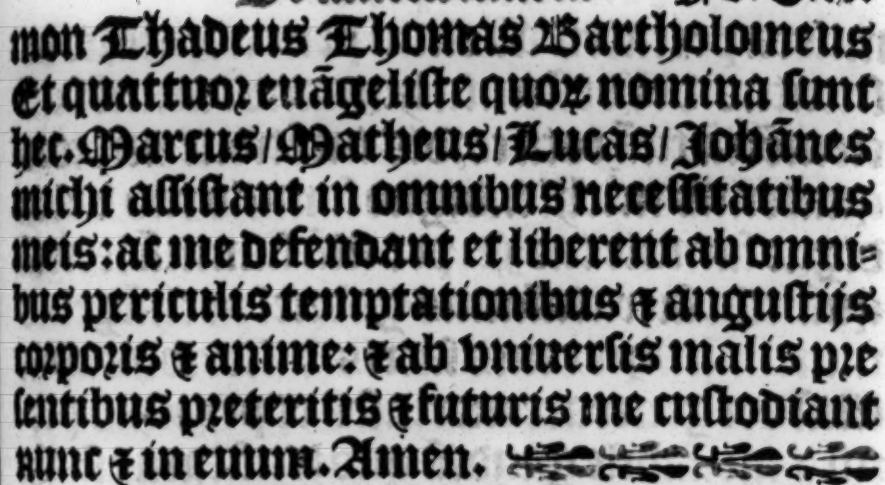 mon Thadeus Thomas Bartholomeus
Et quattuoꝛ euāgeliſte quoꝝ nomina ſunt
hec. Marcus/ Matheus/ Lucas/ Johānes
michi aſſiſtant in omnibus neceſſitatibus
meis: ac me defendant et liberent ab omni⸗
bus periculis temptationibus ⁊ anguſtijs
coꝛpoꝛis ⁊ anime: ⁊ ab vniuerſis malis pꝛe
ſentibus pꝛeteritis ⁊ futuris me cuſtodiant
nunc ⁊ in euum. Amen.